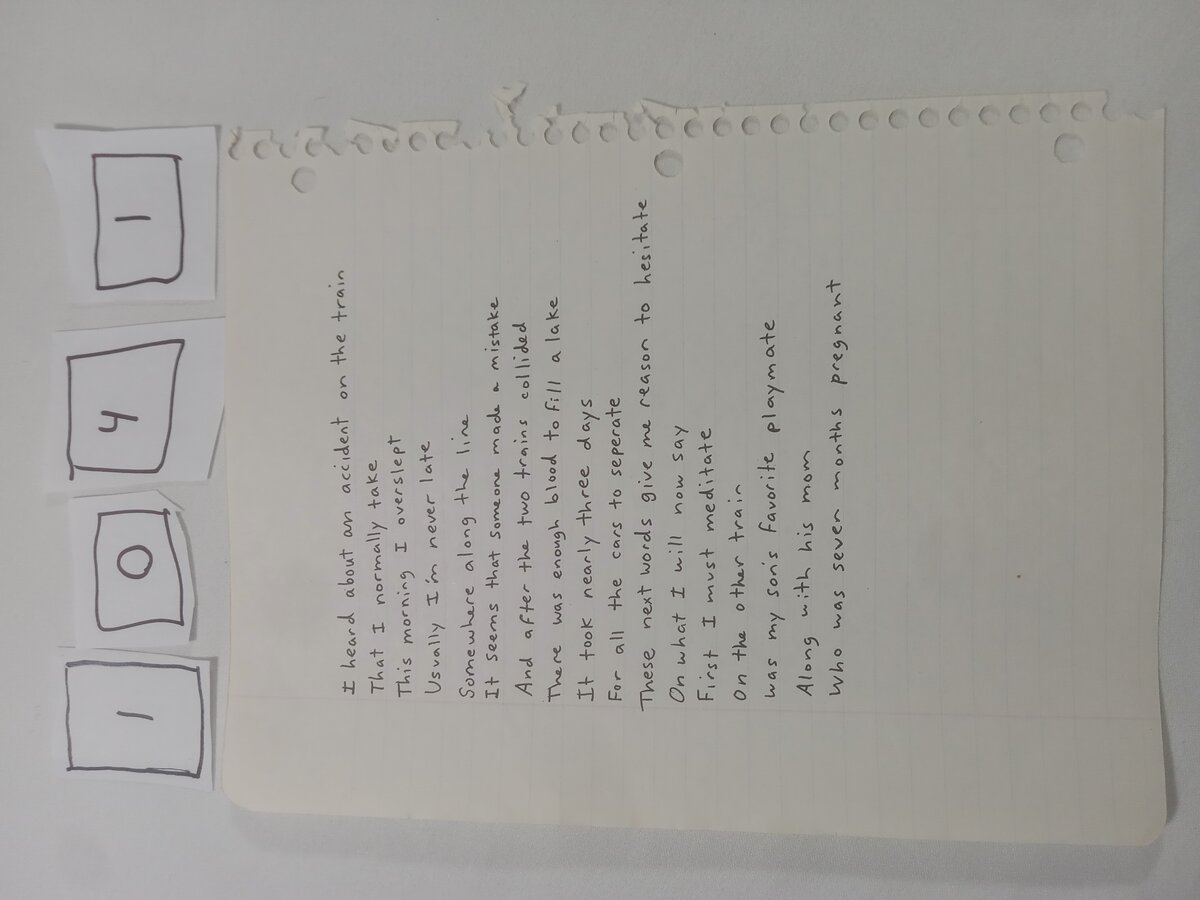 1 0 4 1
I heard about an accident on the train
That I normally take
This morning I overslept
Usually I'm never late
Somewhere along the line
It seems that someone made a mistake
And after the two trains collided
There was enough blood to fill a lake
It took nearly three days
For all the cars to seperate
These next words give me reason to hesitate
On what I will now say
First I must meditate
On the other train
was my son's favorite playmate
Along with his mom
Who was seven months pregnant